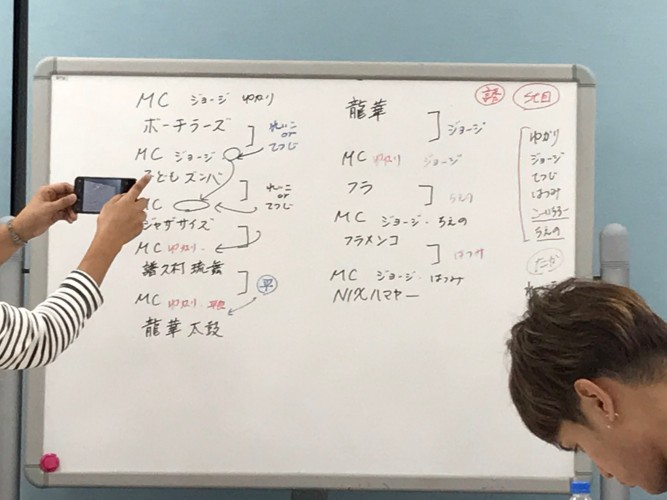 MC ジョージ ゆかり
ボーチラーズ
れいこ
or
てつじ
MC ジョージ
こども ズンバ
れいこ
or
てつじ
MC
ジャザサイズ
MC ゆかり.
譜久村 琉舞
MC ゆかり.
龍華 太鼓
龍華
ジョージ
MC ゆかり ジョージ
フラ
ちえの
MC ジョージ・ちえの
フラメンコ
はつみ
MC ジョージ・はつみ
ハマヤー
ゆかり
ジョージ
てつじ
はつみ
ちえの